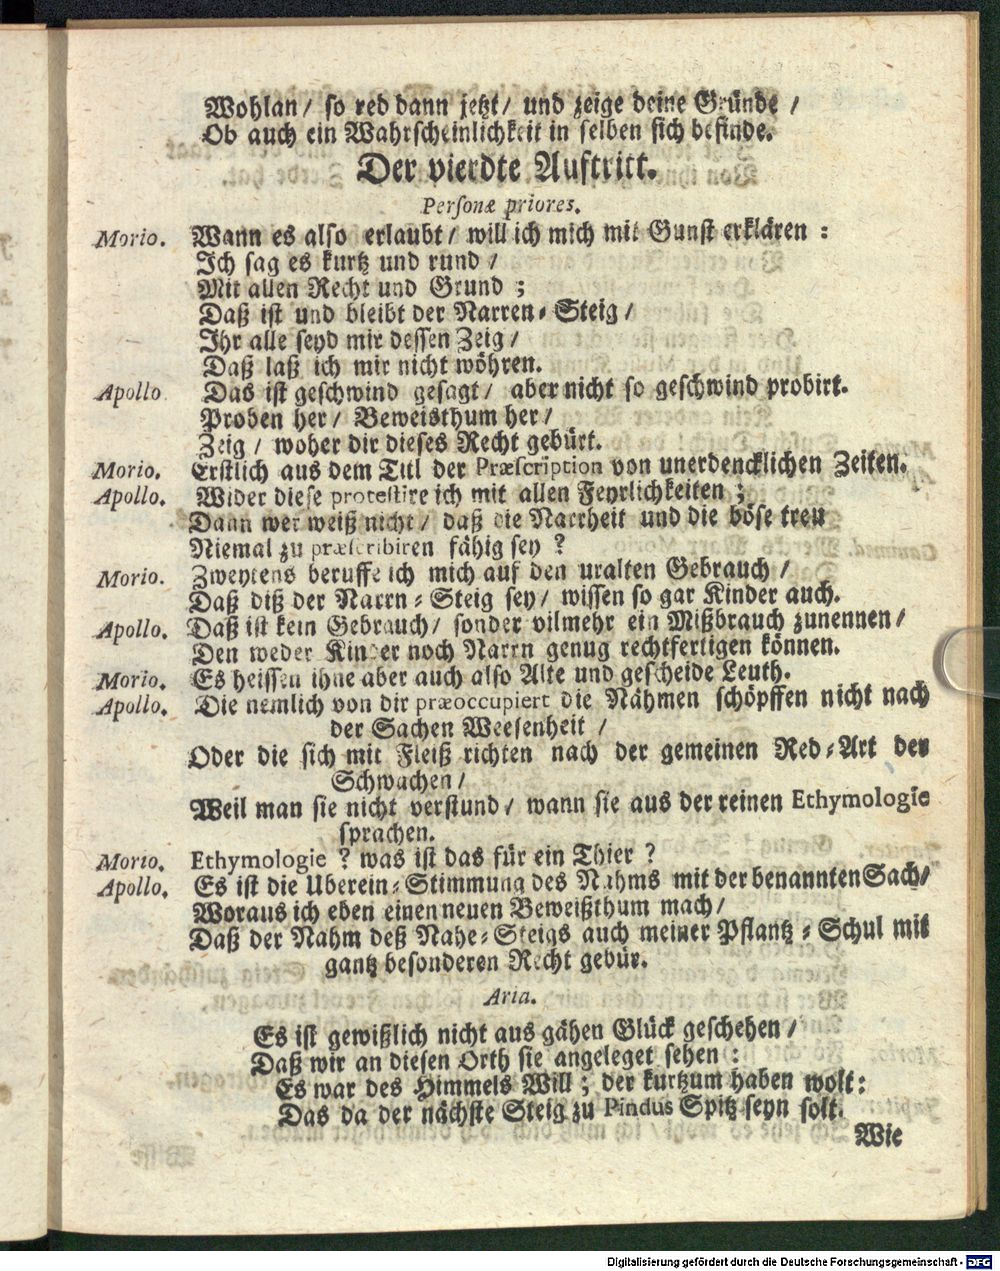 Wohlan / so red dann jetzt / und zeige deine Gründe /
Ob auch ein Wahrscheinlichkeit in selben sich befinde.
Der vierdte Auftritt.
Personæ priores.
Morio. Wann es also erlaubt / will ich mich mit Gunst erklären :
Ich sag es kurtz und rund /
Mit allen Recht und Grund ;
Daß ist und bleibt der Narren-Steig /
Ihr alle seyd mir dessen Zeig /
Daß laß ich mir nicht wöhren.
Apollo. Das ist geschwind gesagt / aber nicht so geschwind probirt.
Proben her / Beweisthum her /
Zeig / woher dir dieses Recht gebürt.
Morio. Erstlich aus dem Titl der Præscription von unerdencklichen Zeiten.
Apollo. Wider diese protestire ich mit allen Feyrlichkeiten ;
Dann wer weiß nicht / daß die Narrheit und die böse treu
Niemal zu præscribiren fähig sey ?
Morio. Zweytens beruffe ich mich auf den uralten Gebrauch /
Daß diß der Narrn-Steig sey / wissen so gar Kinder auch.
Apollo. Daß ist kein Gebrauch / sonder vilmehr ein Mißbrauch zunennen /
Den weder Kinder noch Narrn genug rechtfertigen können.
Morio. Es heissen ihne aber auch also Alte und gescheide Leuth.
Apollo. Die nemlich von dir præoccupiert die Nähmen schöpffen nicht nach
der Sachen Weesenheit /
Oder die sich mit Fleiß richten nach der gemeinen Red-Art der
Schwachen /
Weil man sie nicht verstund / wann sie aus der reinen Ethymologie
sprachen.
Morio. Ethymologie ? was ist das für ein Thier ?
Apollo. Es ist die Uberein-Stimmung des Nahms mit der benannten Sach /
Woraus ich eben einen neuen Beweißthum mach /
Daß der Nahm deß Nahe-Steigs auch meiner Pflantz-Schul mit
gantz besonderen Recht gebür.
Aria.
Es ist gewißlich nicht aus gähen Glück geschehen /
Daß wir an diesen Orth sie angeleget sehen :
Es war des Himmels Will ; der kurtzum haben wolt :
Das da der nächste Steig zu Pindus Spitz seyn solt.
Wie
Digitalisierung gefördert durch die Deutsche Forschungsgemeinschaft - DFG